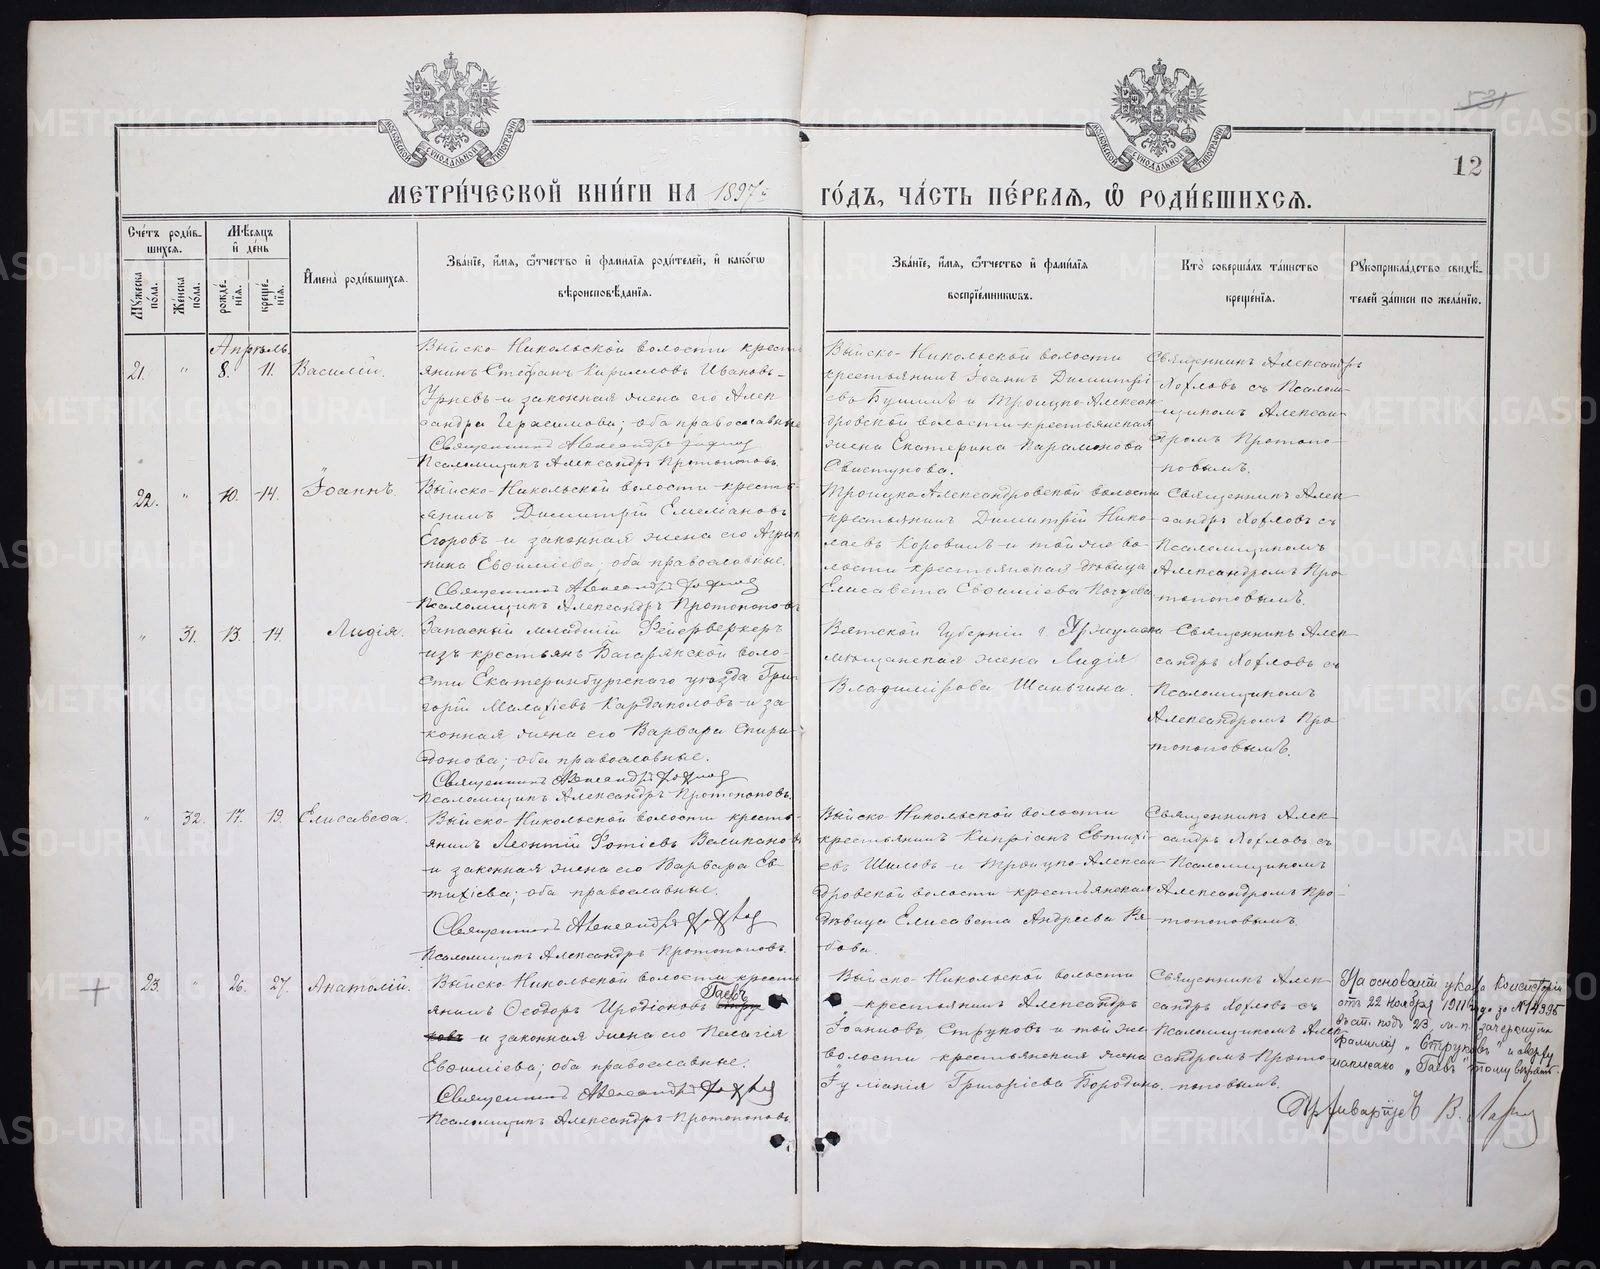 531
12
МЕТРИ́ЧЕСКОЙ КНИ́ГИ НА 1897й ГО́ДЪ, ЧА́СТЬ ПЕ́РВАЯ, Ѡ҆ РОДИ́ВШИХСЯ.
Сче́тъ роди́в-
шихся.
Му́жеска по́ла.
Же́нска по́ла.
Мѣ́сяцъ
и҆ де́нь
рожде́-
нїѧ.
креще́-
нїѧ.
И҆мена̀ роди́вшихся.
Зва́нїе, и҆́мя, ѻ҆́тчество и҆ фами́лїя роди́телей, и҆ како́гѡ
вѣроисповѣ́данїя.
Зва́нїе, и҆́мя, ѻ҆́тчество и҆ фами́лїя
воспрїе́мникѡвъ.
Кто̀ соверша́лъ та́инство
креще́нїя.
Рꙋкоприкла́дство свидѣ́-
телей за́писи по жела́нїю.
Апрѣль.
21. " 8. 11. Василій.
Выйско-Никольской волости кресть
янинъ Стефанъ Кирилловъ Ивановъ-
и законная жена его Алек
сандра Герасимова; оба православные
Священникъ Александръ Хохловъ
Псаломщикъ Александръ Протопоповъ.
Выйско-Никольской волости
крестьянинъ Іоаннъ Димитрі
евъ и Троицко-Алексан
дровской волости крестьянская
жена Екатерина Парамонова
Свистунова.
Священникъ Александръ
Хохловъ съ Псалом-
щикомъ Алексан-
дромъ Протопо-
повымъ.
22. " 10. 14. Іоаннъ.
Выйско-Никольской волости кресть-
янинъ Димитрій Емеліановъ
Егоровъ и законная жена его Агрип
пина Евѳиміева; оба православные.
Священникъ Александръ Хохловъ
Псаломщикъ Александръ Протопоповъ
Троицко-Александровской волости
крестьянинъ Димитрій Нико-
лаевъ Коровинъ и той же во-
лости крестьянская дѣвица
Елисавета Евѳиміева
Священникъ Алек-
сандръ Хохловъ съ
Псаломщикомъ
Александромъ Про-
топоповымъ.
" 31. 13. 14. Лидія.
Запасный младшій Фейерверкеръ
изъ крестьянъ Багарякской воло-
сти Екатеринбургскаго уѣзда Гри-
горій Малахіевъ Кардаполовъ и за
конная жена его Варвара Спири-
донова; оба православные.
Священникъ Александръ Хохловъ
Псаломщикъ Александръ Протопоповъ.
Вятской Губерніи г. Уржума
мѣщанская жена Лидія
Владимірова Шаньгина.
Священникъ Алек-
сандръ Хохловъ съ
Псаломщикомъ
Александромъ Про-
топоповымъ.
" 32. 17. 19. Елисавета.
Выйско-Никольской волости кресть-
янинъ Леонтій Фотіевъ Великановъ
и законная жена его Варвара Ев-
тихіева; оба православные.
Священникъ Александръ Хохловъ
Псаломщикъ Александръ Протопоповъ.
Выйско-Никольской волости
крестьянинъ Кипріанъ Евтихі-
евъ Шиловъ и Троицко-Алексан-
дровской волости крестьянская
дѣвица Елисавета Андреева Ря-
бова.
Священникъ Алек-
сандръ Хохловъ съ
Псаломщикомъ
Александромъ Про-
топоповымъ.
+ 23. " 26. 27. Анатолій.
Выйско-Никольской волости кресть
Гаевъ
янинъ Ѳеодоръ Иродіоновъ Стру
ковъ и законная жена его Пелагія
Евѳиміева; оба православные.
Священникъ Александръ Хохловъ
Псаломщикъ Александръ Протопоповъ.
Выйско-Никольской волости
крестьянинъ Александръ
Іоанновъ Струковъ и той же
волости крестьянская жена
Іуліанія Григоріева Бородина.
Священникъ Алек-
сандръ Хохловъ съ
Псаломщикомъ Алек
сандромъ Прото-
поповымъ.
На основаніи указа Консисторіи
отъ 22 Ноября 1911 года за № 14995
въ ст. подъ 23 м. п. зачеркнута
фамилія „Струковъ" и сверху
написано „Гаевъ" тому вѣрить.
Архиваріусъ В.